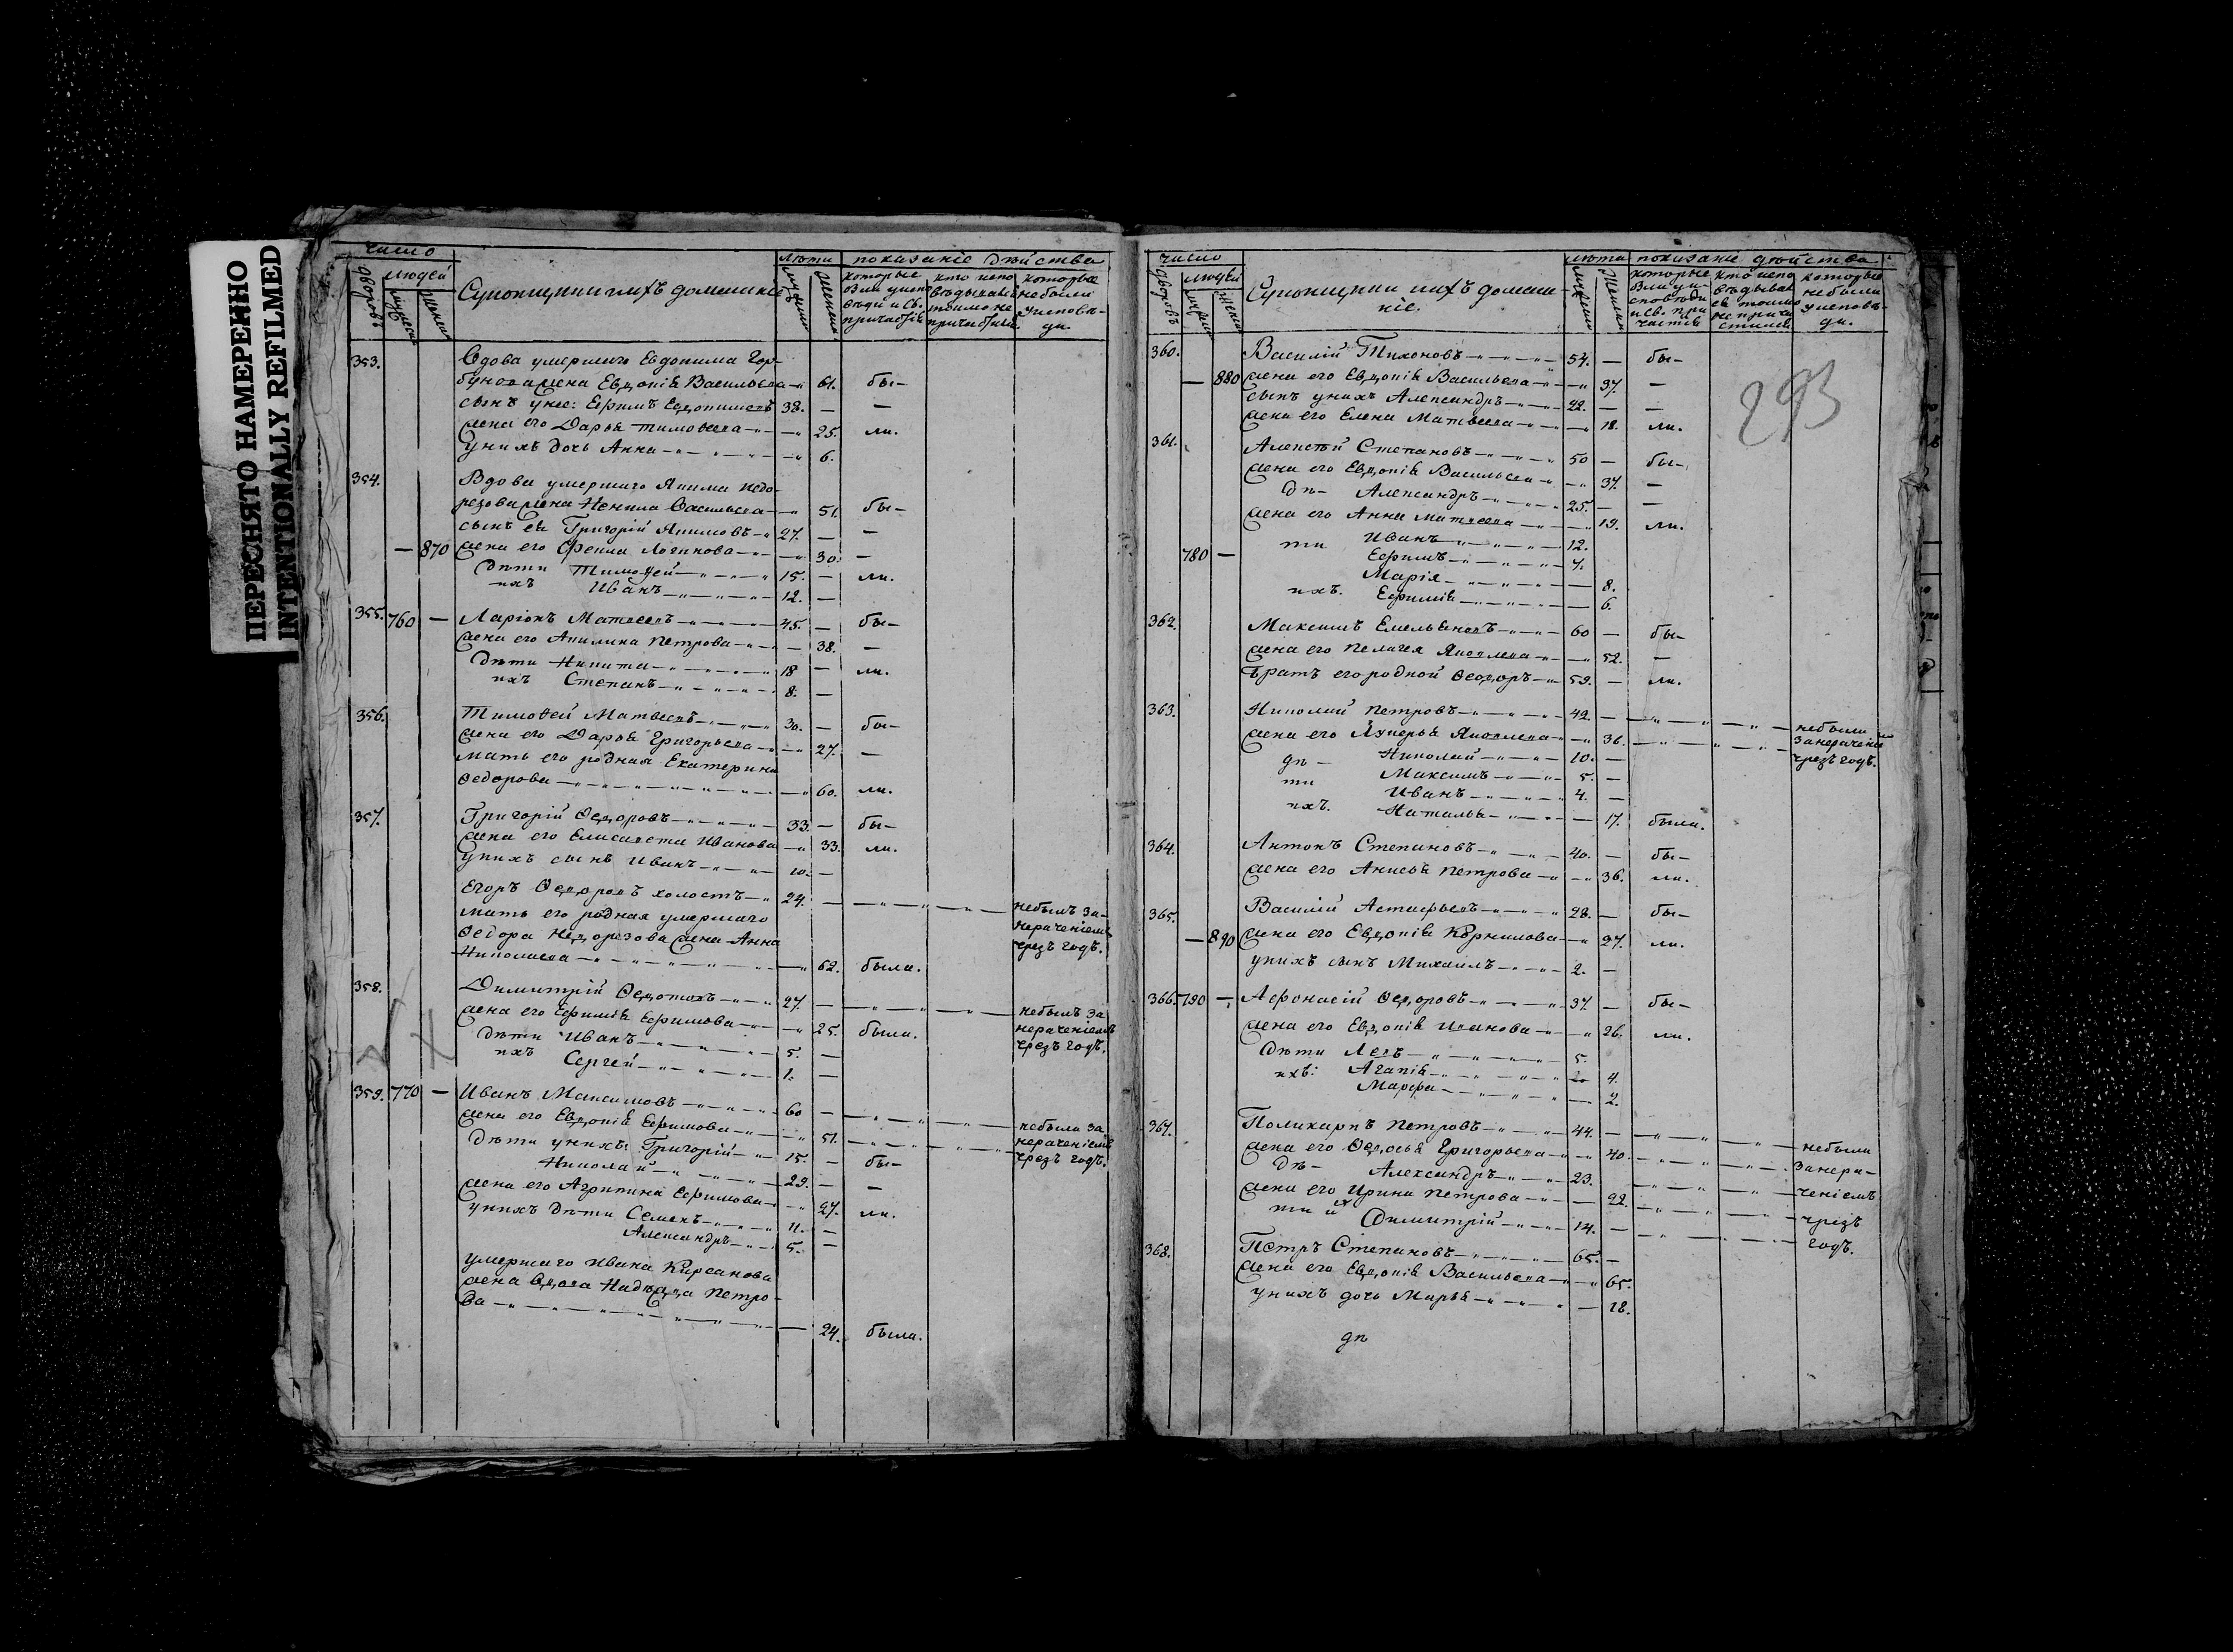 ПЕРЕСНЯТО НАМЕРЕННО
INTENTIONALLY REFILMED
число
людей
дворовъ
мужеска
женска
Супонцини ихъ домашніе
лѣта
мужеска
женска
показаніе дѣйства
которые были у исповѣди и св. причастія
кто исповѣдывался токмо не причастился
которые не были у исповѣди.
353.
Вдова умершаго Евдокима Гор-
бунова жена Евдокія Васильева 61. бы-
сынъ у нее: Ефимъ Евдокимовъ 38. — —
жена его Дарья Тимофеева 25. ли.
у нихъ дочь Анна 6.
354.
Вдова умершаго Якима Недо-
резова жена Ненила Васильева 51. бы-
сынъ ея Григорій Якимовъ 27. — —
— 870 жена его Фекла Логинова 30. —
Дѣти Тимофей 15. — ли.
ихъ Иванъ 12. —
355. 760 — Ларіонъ Матвеевъ 45. — бы-
жена его Акилина Петрова — 38. —
Дѣти Никита 18 — ли.
ихъ Степанъ 8. —
356.
Тимофей Матвеевъ 30. — бы-
жена его Дарья Григорьева 27. —
мать его родная Екатерина
Федорова 60. ли.
357.
Григорій Федоровъ 33. — бы-
жена его Елисавета Иванова 33. ли.
у нихъ сынъ Иванъ 10. —
Егоръ Федоровъ холостъ 24. — небылъ за-
мать его родная умершаго нераченіемъ
Федора Недорезова жена Анна чрезъ годъ.
Николаева 62. была.
358.
Димитрій Федотовъ 27. — небылъ за
жена его Ефимія Ефимова 25. была. нераченіемъ
дѣти Иванъ 5. — чрезъ годъ.
ихъ Сергей 1. —
359. 770 — Иванъ Максимовъ 60 —
жена его Евдокія Ефимова 51. небыли за
Дѣти у нихъ: Григорій 15. — бы- нераченіемъ
Николай 29. — — чрезъ годъ.
жена его Агрипина Ефимова 27. ли.
у нихъ дѣти Семенъ 11. —
Александръ 5. —
умершаго Ивана Кирсанова
жена вдова Надѣжда Петро-
ва — 24. была.
число
людей
дворовъ
мужеска
женска
Супонцини ихъ домаш-
ніе.
лѣта
мужеска
женска
показаніе дѣйства
которые были у исповѣди и св. причастія
кто исповѣдывался токмо не причастился
которые не были у исповѣди.
293
360.
Василій Тихоновъ 54. — бы-
— 880 жена его Евдокія Васильева 37. —
сынъ у нихъ Александръ 22. — —
жена его Елена Матвеева 18. ли.
361.
Алексѣй Степановъ 50 — бы-
жена его Евдокія Васильева 37. —
дѣ- Александръ 25. — —
жена его Анна Матвеева 19. ли.
ти Иванъ 12.
780 — Ефимъ
Марія — 8.
ихъ. Ефимія — 6.
362.
Максимъ Емельяновъ 60 — бы-
жена его Пелагея Яковлева 52. —
братъ его родной Федоръ 59. — ли.
363.
Николай Петровъ 42. — небыли
жена его Лукерья Яковлева 36. за нераченіемъ
дѣ- Николай 10. — чрезъ годъ.
ти Максимъ 5. —
Иванъ 4. —
ихъ. Наталья — 17. была.
364.
Антонъ Степановъ 40. — бы-
жена его Анисья Петрова 36. ли.
365.
Василій Астафьевъ 28. — бы-
— 890 жена его Евдокія Корнилова 27. ли.
у нихъ сынъ Михаилъ 2. —
366. 790 — Афонасій Федоровъ 37. — бы-
жена его Евдокія Иванова 26. ли.
Дѣти Левъ 5.
ихъ: Агапія 4.
Марфа 2.
367.
Поликарпъ Петровъ 44. — небыли
жена его Федосья Григорьева 40. за нера-
дѣ- Александръ 23. ченіемъ
жена его Ирина Петрова — 22. чрезъ
ти ихъ Димитрій 14. — годъ.
368.
Петръ Степановъ 65. —
жена его Евдокія Васильева 65.
у нихъ дочь Марья — 18.
дѣ